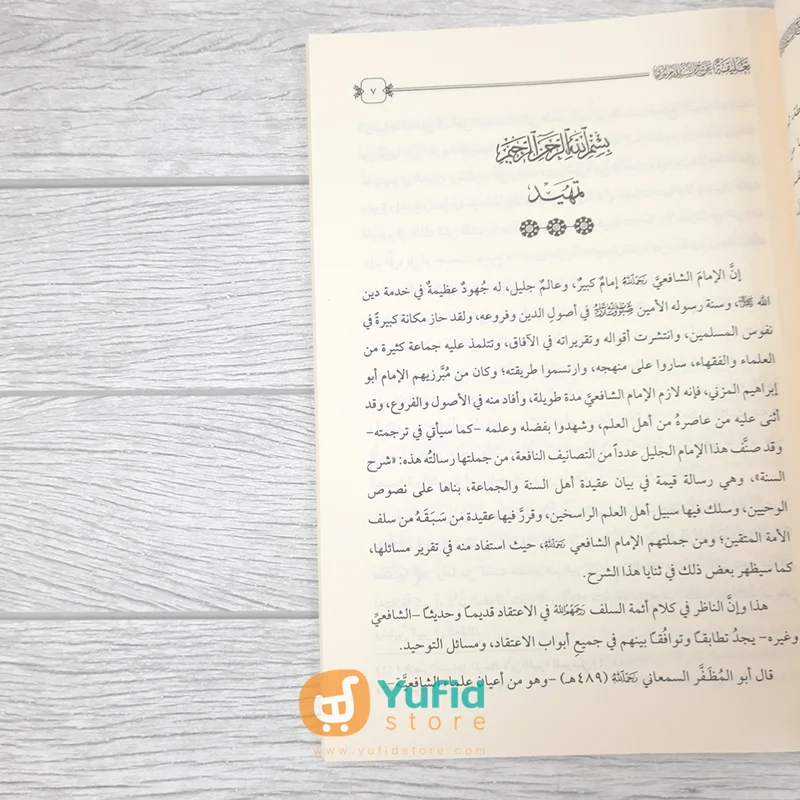 ٧
بسم الله الرحمن الرحيم
تمهيد
إنَّ الإمامَ الشافعيَّ رَحِمَهُ اللَّهُ إمامٌ كبيرٌ، وعالمٌ جليل، له جُهودٌ عظيمةٌ في خدمة دين
الله ﷻ، وسنة رسوله الأمين ﷺ في أصولِ الدين وفروعه، ولقد حاز مكانة كبيرةً في
نفوس المسلمين، وانتشرت أقواله وتقريراته في الآفاق، وتتلمذ عليه جماعة كثيرة من
العلماء والفقهاء، ساروا على منهجهِ، وارتسموا طريقته؛ وكان من مُبَّرزيهم الإمام أبو
إبراهيم المزني، فإنه لازم الإمام الشافعيَّ مدة طويلة، وأفاد منه في الأصول والفروع، وقد
أثنى عليه من عاصرهُ من أهل العلم، وشهدوا بفضله وعلمه -كما سيأتي في ترجمته-
وقد صنَّف هذا الإمام الجليل عدداً من التصانيف النافعة، من جملتها رسالتُه هذه: «شرح
السنة»، وهي رسالة قيمة في بيان عقيدة أهل السنة والجماعة، بناها على نصوص
الوحيين، وسلك فيها سبيل أهل العلم الراسخين، وقررَّ فيها عقيدة من سَبَقَهُ من سلف
الأمة المتقين؛ ومن جملتهم الإمام الشافعي رَحِمَهُ اللَّهُ، حيث استفاد منه في تقرير مسائلها،
كما سيظهر بعض ذلك في ثنايا هذا الشرح.
هذا وإنَّ الناظر في كلام أئمة السلف رَحِمَهُمُ اللَّهُ في الاعتقاد قديمًا وحديثًا -الشافعيِّ
وغيره- يجدُ تطابقًا وتوافُقًا بينهم في جميعِ أبواب الاعتقاد، ومسائل التوحيد.
قال أبو المُظَفَّر السمعاني رَحِمَهُ اللَّهُ (٤٨٩هـ) -وهو من أعيان علماء الشافعيَّة-
YuFid
store
www.yufidstore.com